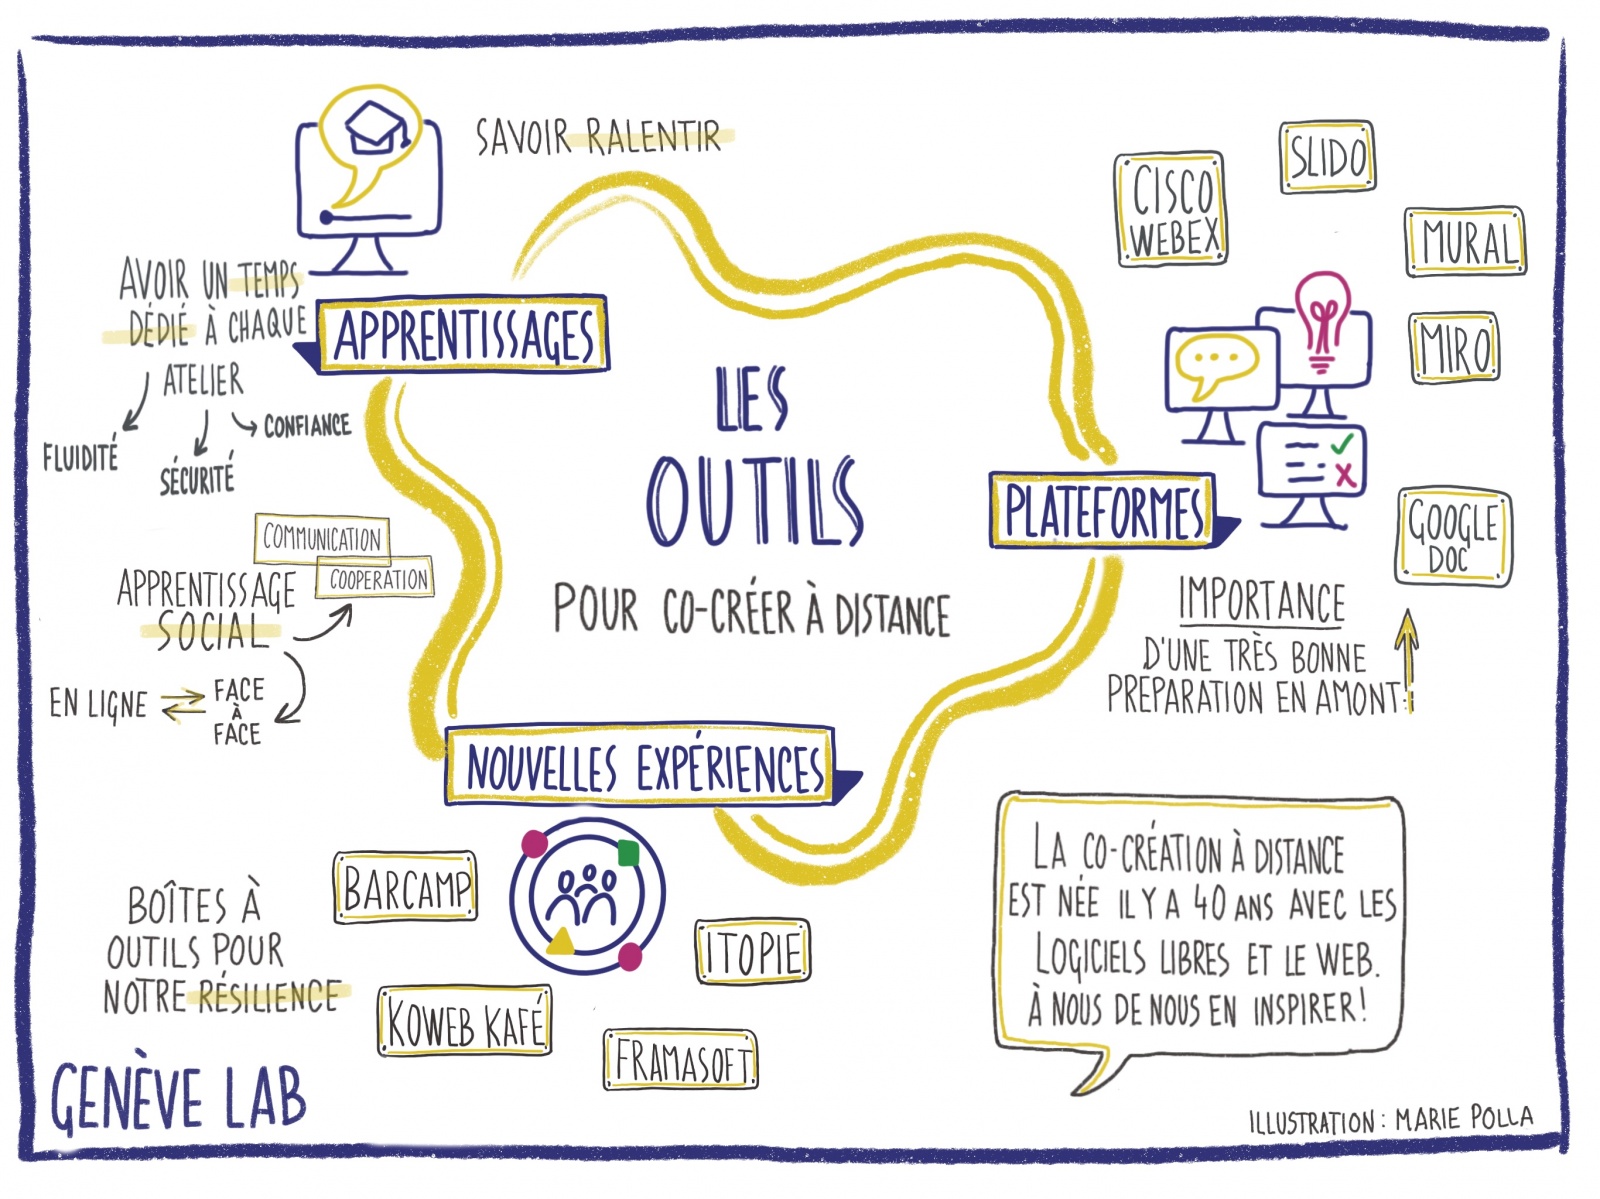 SAVOIR RALENTIR
AVOIR UN TEMPS
DÉDIÉ À CHAQUE
ATELIER
FLUIDITÉ
SÉCURITÉ
CONFIANCE
APPRENTISSAGES
COMMUNICATION
COOPERATION
APPRENTISSAGE
SOCIAL
EN LIGNE
FACE
À
FACE
LES
OUTILS
POUR CO-CRÉER À DISTANCE
CISCO
WEBEX
SLIDO
MURAL
MIRO
PLATEFORMES
GOOGLE
DOC
IMPORTANCE
D'UNE TRÈS BONNE
PRÉPARATION EN AMONT!
NOUVELLES EXPÉRIENCES
BARCAMP
ITOPIE
KOWEB KAFÉ
FRAMASOFT
BOÎTES À
OUTILS POUR
NOTRE RÉSILIENCE
LA CO-CRÉATION À DISTANCE
EST NÉE IL Y A 40 ANS AVEC LES
LOGICIELS LIBRES ET LE WEB.
À NOUS DE NOUS EN INSPIRER!
GENÈVE LAB
ILLUSTRATION: MARIE POLLA